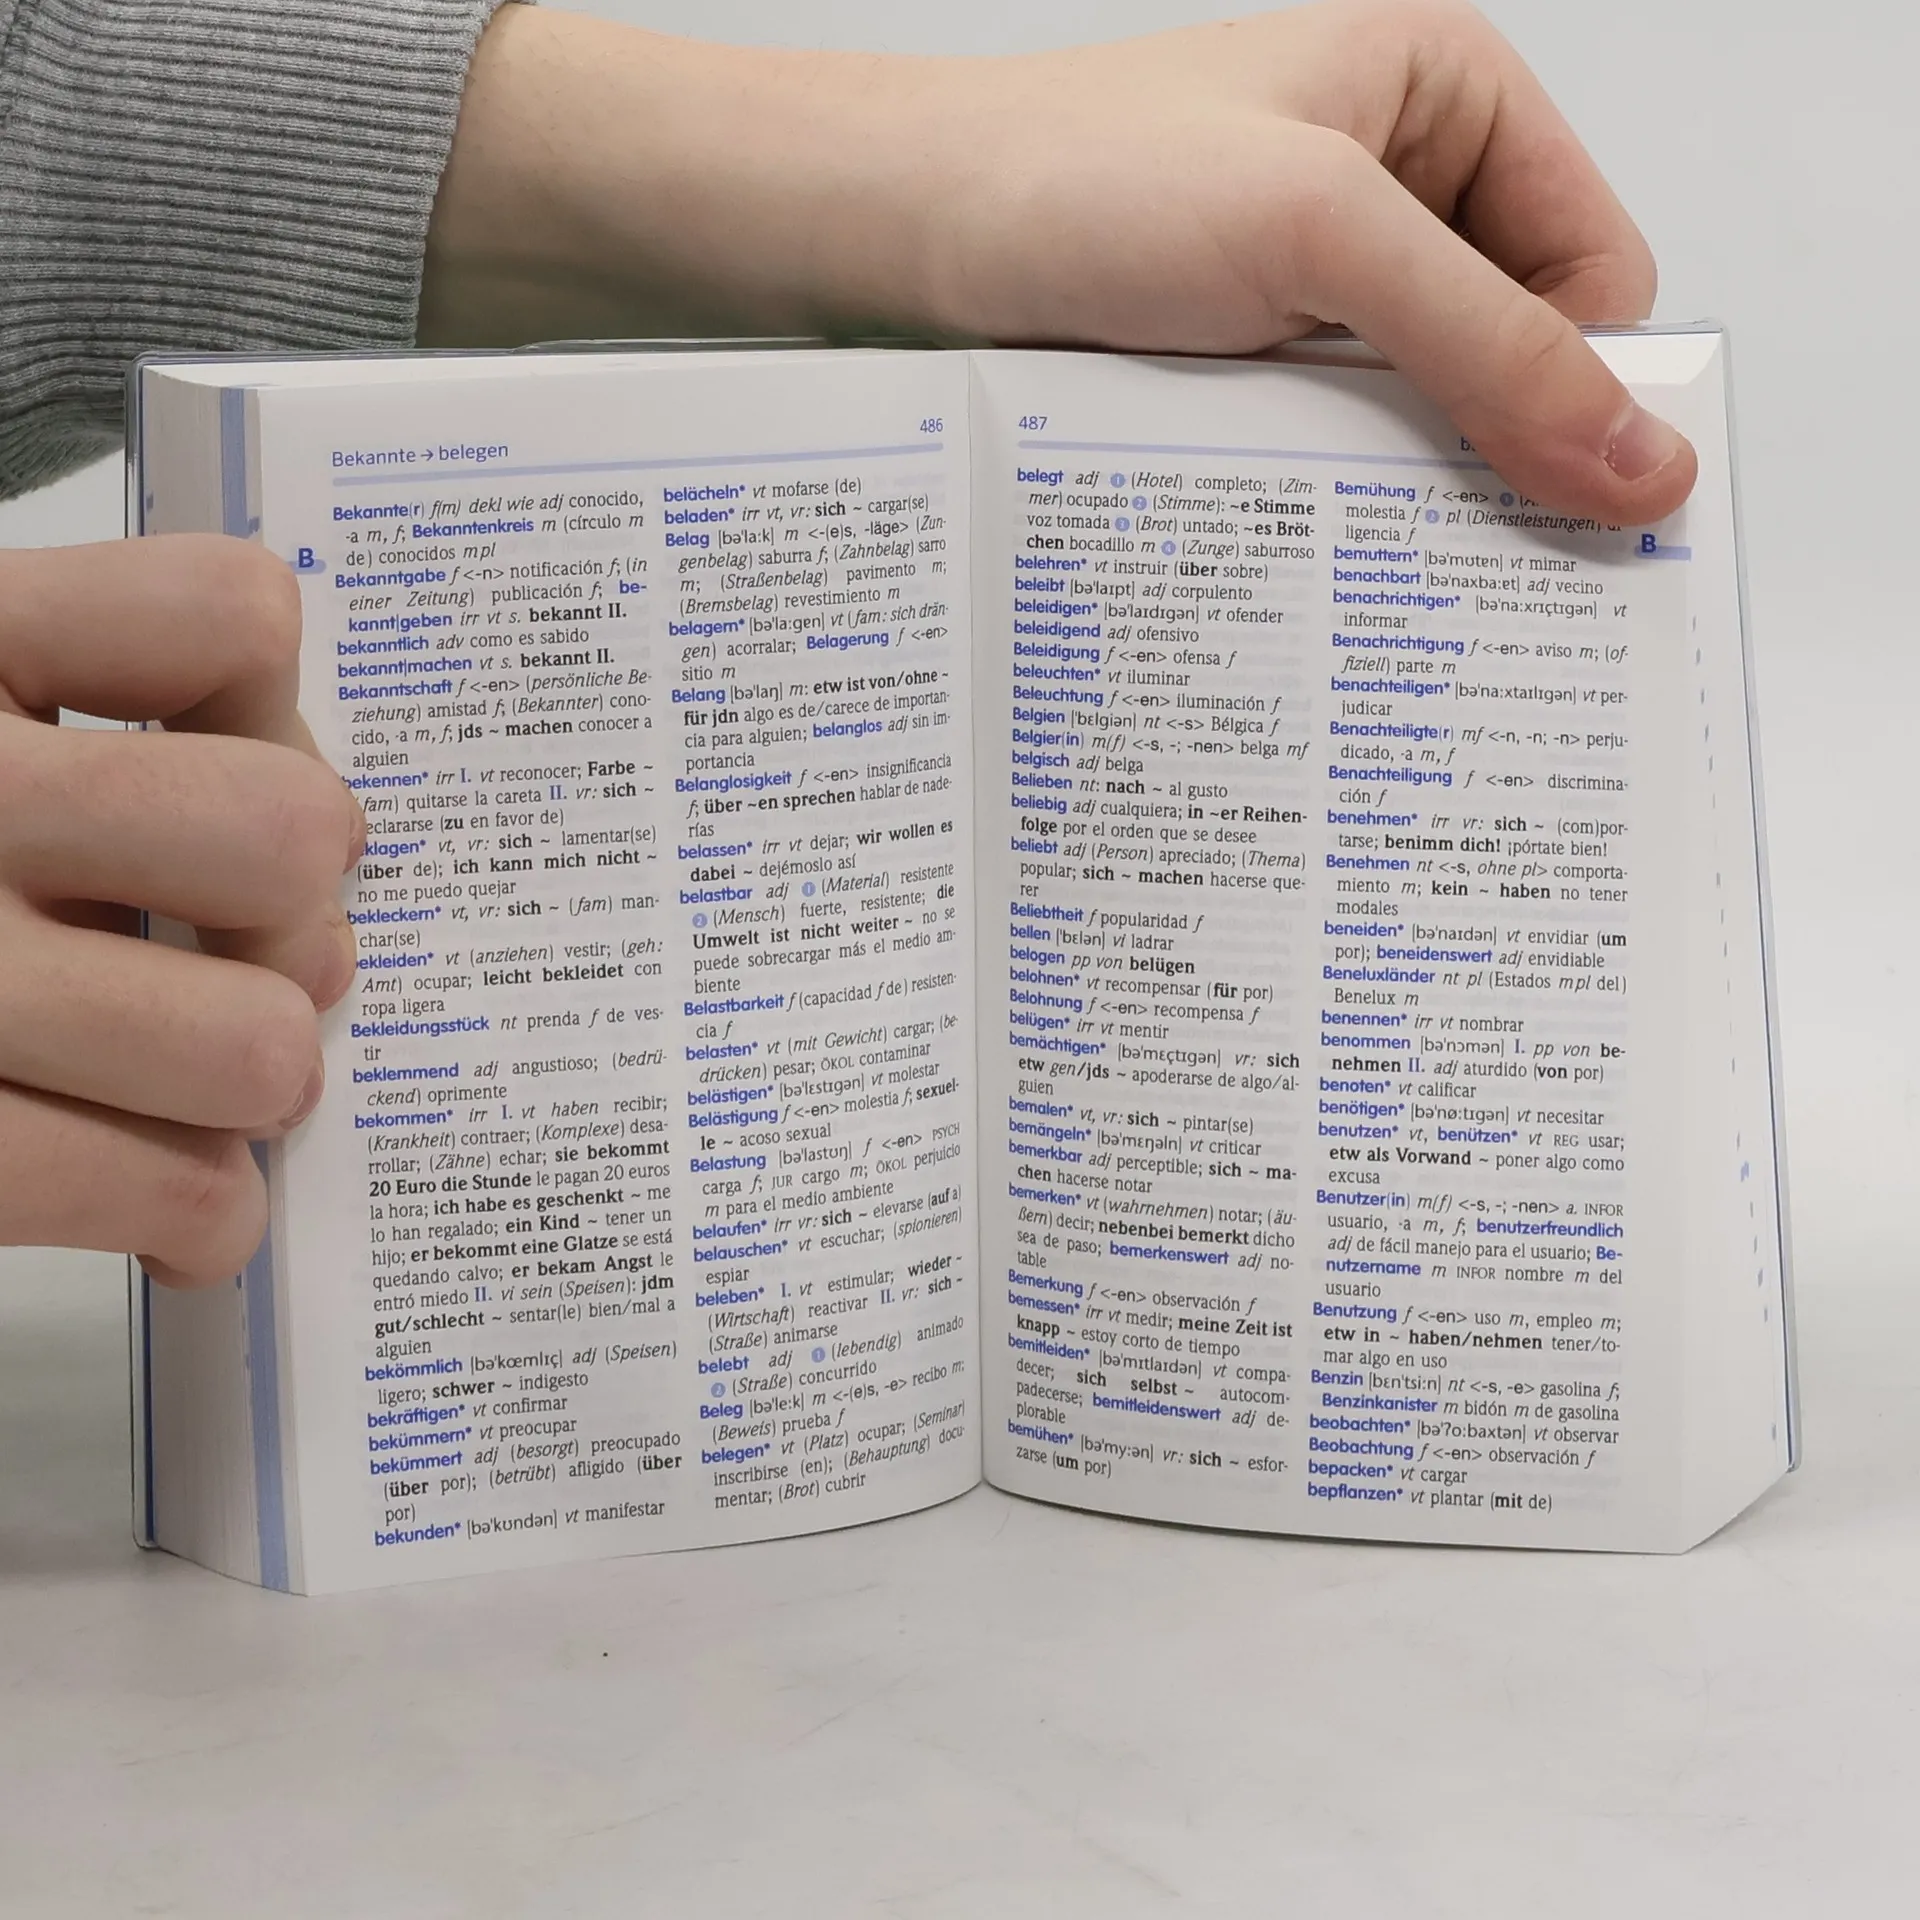 486
Bekannte → belegen
B
Bekannte(r) f(m) dekl wie adj conocido,
-a m, f; Bekanntenkreis m (círculo m
de) conocidos mpl
Bekanntgabe f <-n> notificación f; (in
einer Zeitung) publicación f; be-
kannt|geben irr vt s. bekannt II.
bekanntlich adv como es sabido
bekannt|machen vt s. bekannt II.
Bekanntschaft f <-en> (persönliche Be-
ziehung) amistad f; (Bekannter) cono-
cido, -a m, f; jds ~ machen conocer a
alguien
bekennen* irr I. vt reconocer; Farbe ~
fam) quitarse la careta II. vr: sich ~
eclararse (zu en favor de)
klagen* vt, vr: sich ~ lamentar(se)
(über de); ich kann mich nicht ~
no me puedo quejar
bekleckern* vt, vr: sich ~ (fam) man-
char(se)
ekleiden* vt (anziehen) vestir; (geh:
Amt) ocupar; leicht bekleidet con
ropa ligera
Bekleidungsstück nt prenda f de ves-
tir
beklemmend adj angustioso; (bedrü-
ckend) oprimente
bekommen* irr I. vt haben recibir;
(Krankheit) contraer; (Komplexe) desa-
rrollar; (Zähne) echar; sie bekommt
20 Euro die Stunde le pagan 20 euros
la hora; ich habe es geschenkt ~ me
lo han regalado; ein Kind ~ tener un
hijo; er bekommt eine Glatze se está
quedando calvo; er bekam Angst le
entró miedo II. vi sein (Speisen): jdm
gut/schlecht ~ sentar(le) bien/mal a
alguien
bekömmlich [bə'kœmlɪç] adj (Speisen)
ligero; schwer ~ indigesto
bekräftigen* vt confirmar
bekümmern* vt preocupar
bekümmert adj (besorgt) preocupado
(über por); (betrübt) afligido (über
por)
bekunden* [bə'kʊndən] vt manifestar
belächeln* vt mofarse (de)
beladen* irr vt, vr: sich ~ cargar(se)
Belag [bə'la:k] m <-(e)s, -läge> (Zun-
genbelag) saburra f; (Zahnbelag) sarro
m; (Straßenbelag) pavimento m;
(Bremsbelag) revestimiento m
belagern* [bə'la:gɐn] vt (fam: sich drän-
gen) acorralar; Belagerung f <-en>
sitio m
Belang [bə'laŋ] m: etw ist von/ohne ~
für jdn algo es de/carece de importan-
cia para alguien; belanglos adj sin im-
portancia
Belanglosigkeit f <-en> insignificancia
f; über ~en sprechen hablar de nade-
rías
belassen* irr vt dejar; wir wollen es
dabei ~ dejémoslo así
belastbar adj 1 (Material) resistente
2 (Mensch) fuerte, resistente; die
Umwelt ist nicht weiter ~ no se
puede sobrecargar más el medio am-
biente
Belastbarkeit f (capacidad f de) resisten-
cia f
belasten* vt (mit Gewicht) cargar; (be-
drücken) pesar; ÖKOL contaminar
belästigen* [bə'lɛstɪgən] vt molestar
Belästigung f <-en> molestia f; sexuel-
le ~ acoso sexual
Belastung [bə'lastʊŋ] f <-en> PSYCH
carga f; JUR cargo m; ÖKOL perjuicio
m para el medio ambiente
belaufen* irr vr: sich ~ elevarse (auf a)
belauschen* vt escuchar; (spionieren)
espiar
beleben* I. vt estimular; wieder ~
(Wirtschaft) reactivar II. vr: sich ~
(Straße) animarse
belebt adj 1 (lebendig) animado
2 (Straße) concurrido
Beleg [bə'le:k] m <-(e)s, -e> recibo m;
(Beweis) prueba f
belegen* vt (Platz) ocupar; (Seminar)
inscribirse (en); (Behauptung) docu-
mentar; (Brot) cubrir
487
B
belegt adj 1 (Hotel) completo; (Zim-
mer) ocupado 2 (Stimme): ~e Stimme
voz tomada 3 (Brot) untado; ~es Bröt-
chen bocadillo m 4 (Zunge) saburroso
belehren* vt instruir (über sobre)
beleibt [bə'laɪpt] adj corpulento
beleidigen* [bə'laɪdɪgən] vt ofender
beleidigend adj ofensivo
Beleidigung f <-en> ofensa f
beleuchten* vt iluminar
Beleuchtung f <-en> iluminación f
Belgien ['bɛlgiən] nt <-s> Bélgica f
Belgier(in) m(f) <-s, -; -nen> belga mf
belgisch adj belga
Belieben nt: nach ~ al gusto
beliebig adj cualquiera; in ~er Reihen-
folge por el orden que se desee
beliebt adj (Person) apreciado; (Thema)
popular; sich ~ machen hacerse que-
rer
Beliebtheit f popularidad f
bellen ['bɛlən] vi ladrar
belogen pp von belügen
belohnen* vt recompensar (für por)
Belohnung f <-en> recompensa f
belügen* irr vt mentir
bemächtigen* [bə'mɛçtɪgən] vr: sich
etw gen/jds ~ apoderarse de algo/al-
guien
bemalen* vt, vr: sich ~ pintar(se)
bemängeln* [bə'mɛŋəln] vt criticar
bemerkbar adj perceptible; sich ~ ma-
chen hacerse notar
bemerken* vt (wahrnehmen) notar; (äu-
ßern) decir; nebenbei bemerkt dicho
sea de paso; bemerkenswert adj no-
table
Bemerkung f <-en> observación f
bemessen* irr vt medir; meine Zeit ist
knapp ~ estoy corto de tiempo
bemitleiden* [bə'mɪtlaɪdən] vt compa-
decer; sich selbst ~ autocom-
padecerse; bemitleidenswert adj de-
plorable
bemühen* [bə'my:ən] vr: sich ~ esfor-
zarse (um por)
Bemühung f <-en> 1
molestia f 2 pl (Dienstleistungen)
ligencia f
bemuttern* [bə'mʊtɐn] vt mimar
benachbart [bə'naxba:ɐt] adj vecino
benachrichtigen* [bə'na:xrɪçtɪgən] vt
informar
Benachrichtigung f <-en> aviso m; (of-
fiziell) parte m
benachteiligen* [bə'na:xtaɪlɪgən] vt per-
judicar
Benachteiligte(r) mf <-n, -n; -n> perju-
dicado, -a m, f
Benachteiligung f <-en> discrimina-
ción f
benehmen* irr vr: sich ~ (com)por-
tarse; benimm dich! ¡pórtate bien!
Benehmen nt <-s, ohne pl> comporta-
miento m; kein ~ haben no tener
modales
beneiden* [bə'naɪdən] vt envidiar (um
por); beneidenswert adj envidiable
Beneluxländer nt pl (Estados mpl del)
Benelux m
benennen* irr vt nombrar
benommen [bə'nɔmən] I. pp von be-
nehmen II. adj aturdido (von por)
benoten* vt calificar
benötigen* [bə'nø:tɪgən] vt necesitar
benutzen* vt, benützen* vt REG usar;
etw als Vorwand ~ poner algo como
excusa
Benutzer(in) m(f) <-s, -; -nen> a. INFOR
usuario, -a m, f; benutzerfreundlich
adj de fácil manejo para el usuario; Be-
nutzername m INFOR nombre m del
usuario
Benutzung f <-en> uso m, empleo m;
etw in ~ haben/nehmen tener/to-
mar algo en uso
Benzin [bɛn'tsi:n] nt <-s, -e> gasolina f;
Benzinkanister m bidón m de gasolina
beobachten* [bə'ʔo:baxtən] vt observar
Beobachtung f <-en> observación f
bepacken* vt cargar
bepflanzen* vt plantar (mit de)